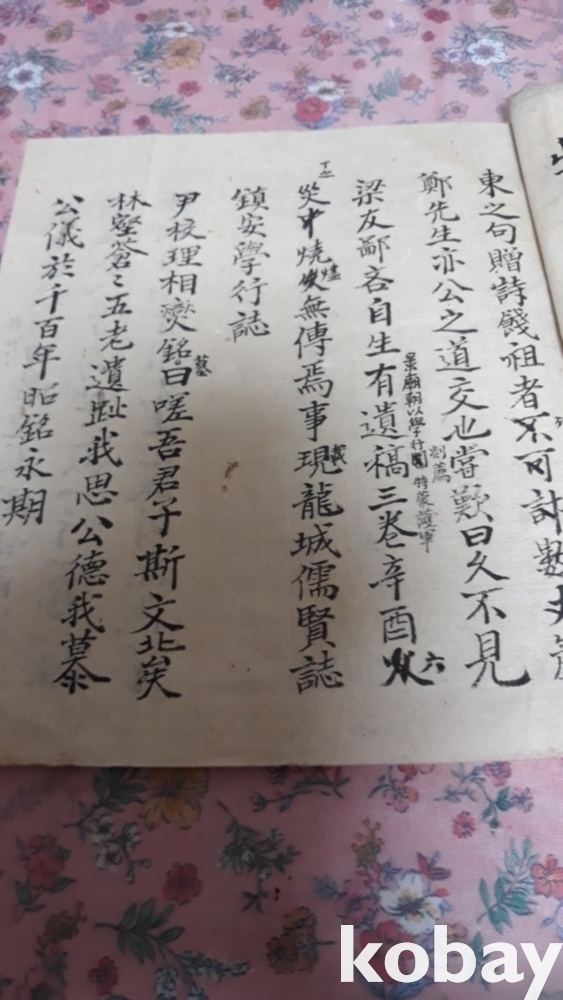 東之句贈詩餞祖者不可計數
鄭先生亦公之道交也嘗歎曰久不見
剡薦
景廟朝以學行 特蒙護軍
梁友鄙吝自生有遺稿三卷辛酉火六
災中燒燼無傳焉事現載龍城儒賢誌
鎮安學行誌
尹校理相奕墓銘曰嗟吾君子斯文北矣
林壑蒼〻五老遺趾我思公德我慕
公儀於千百年昭銘永期
kobay